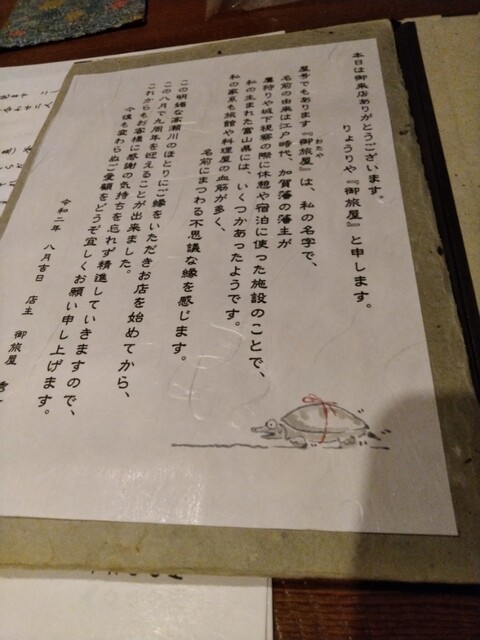 本日は御来店ありがとうございます。
りょうりや『御旅屋』と申します。
おたや
屋号でもあります『御旅屋』は、私の名字で、
名前の由来は江戸時代、加賀藩の藩主が
鷹狩りや城下視察の際に休憩や宿泊に使った施設のことで、
私の生まれた富山県には、いくつかあったようです。
私の家系も旅館や料理屋の血筋が多く、
名前にまつわる不思議な縁を感じます。
この明媚な高瀬川のほとりにご縁をいただきお店を始めてから、
この八月で九周年を迎えることが出来ました。
これからもお客様に感謝の気持ちを忘れず精進していきますので、
今後も変わらぬご愛顧をどうぞ宜しくお願い申し上げます。
令和二年 八月吉日 店主 御旅屋